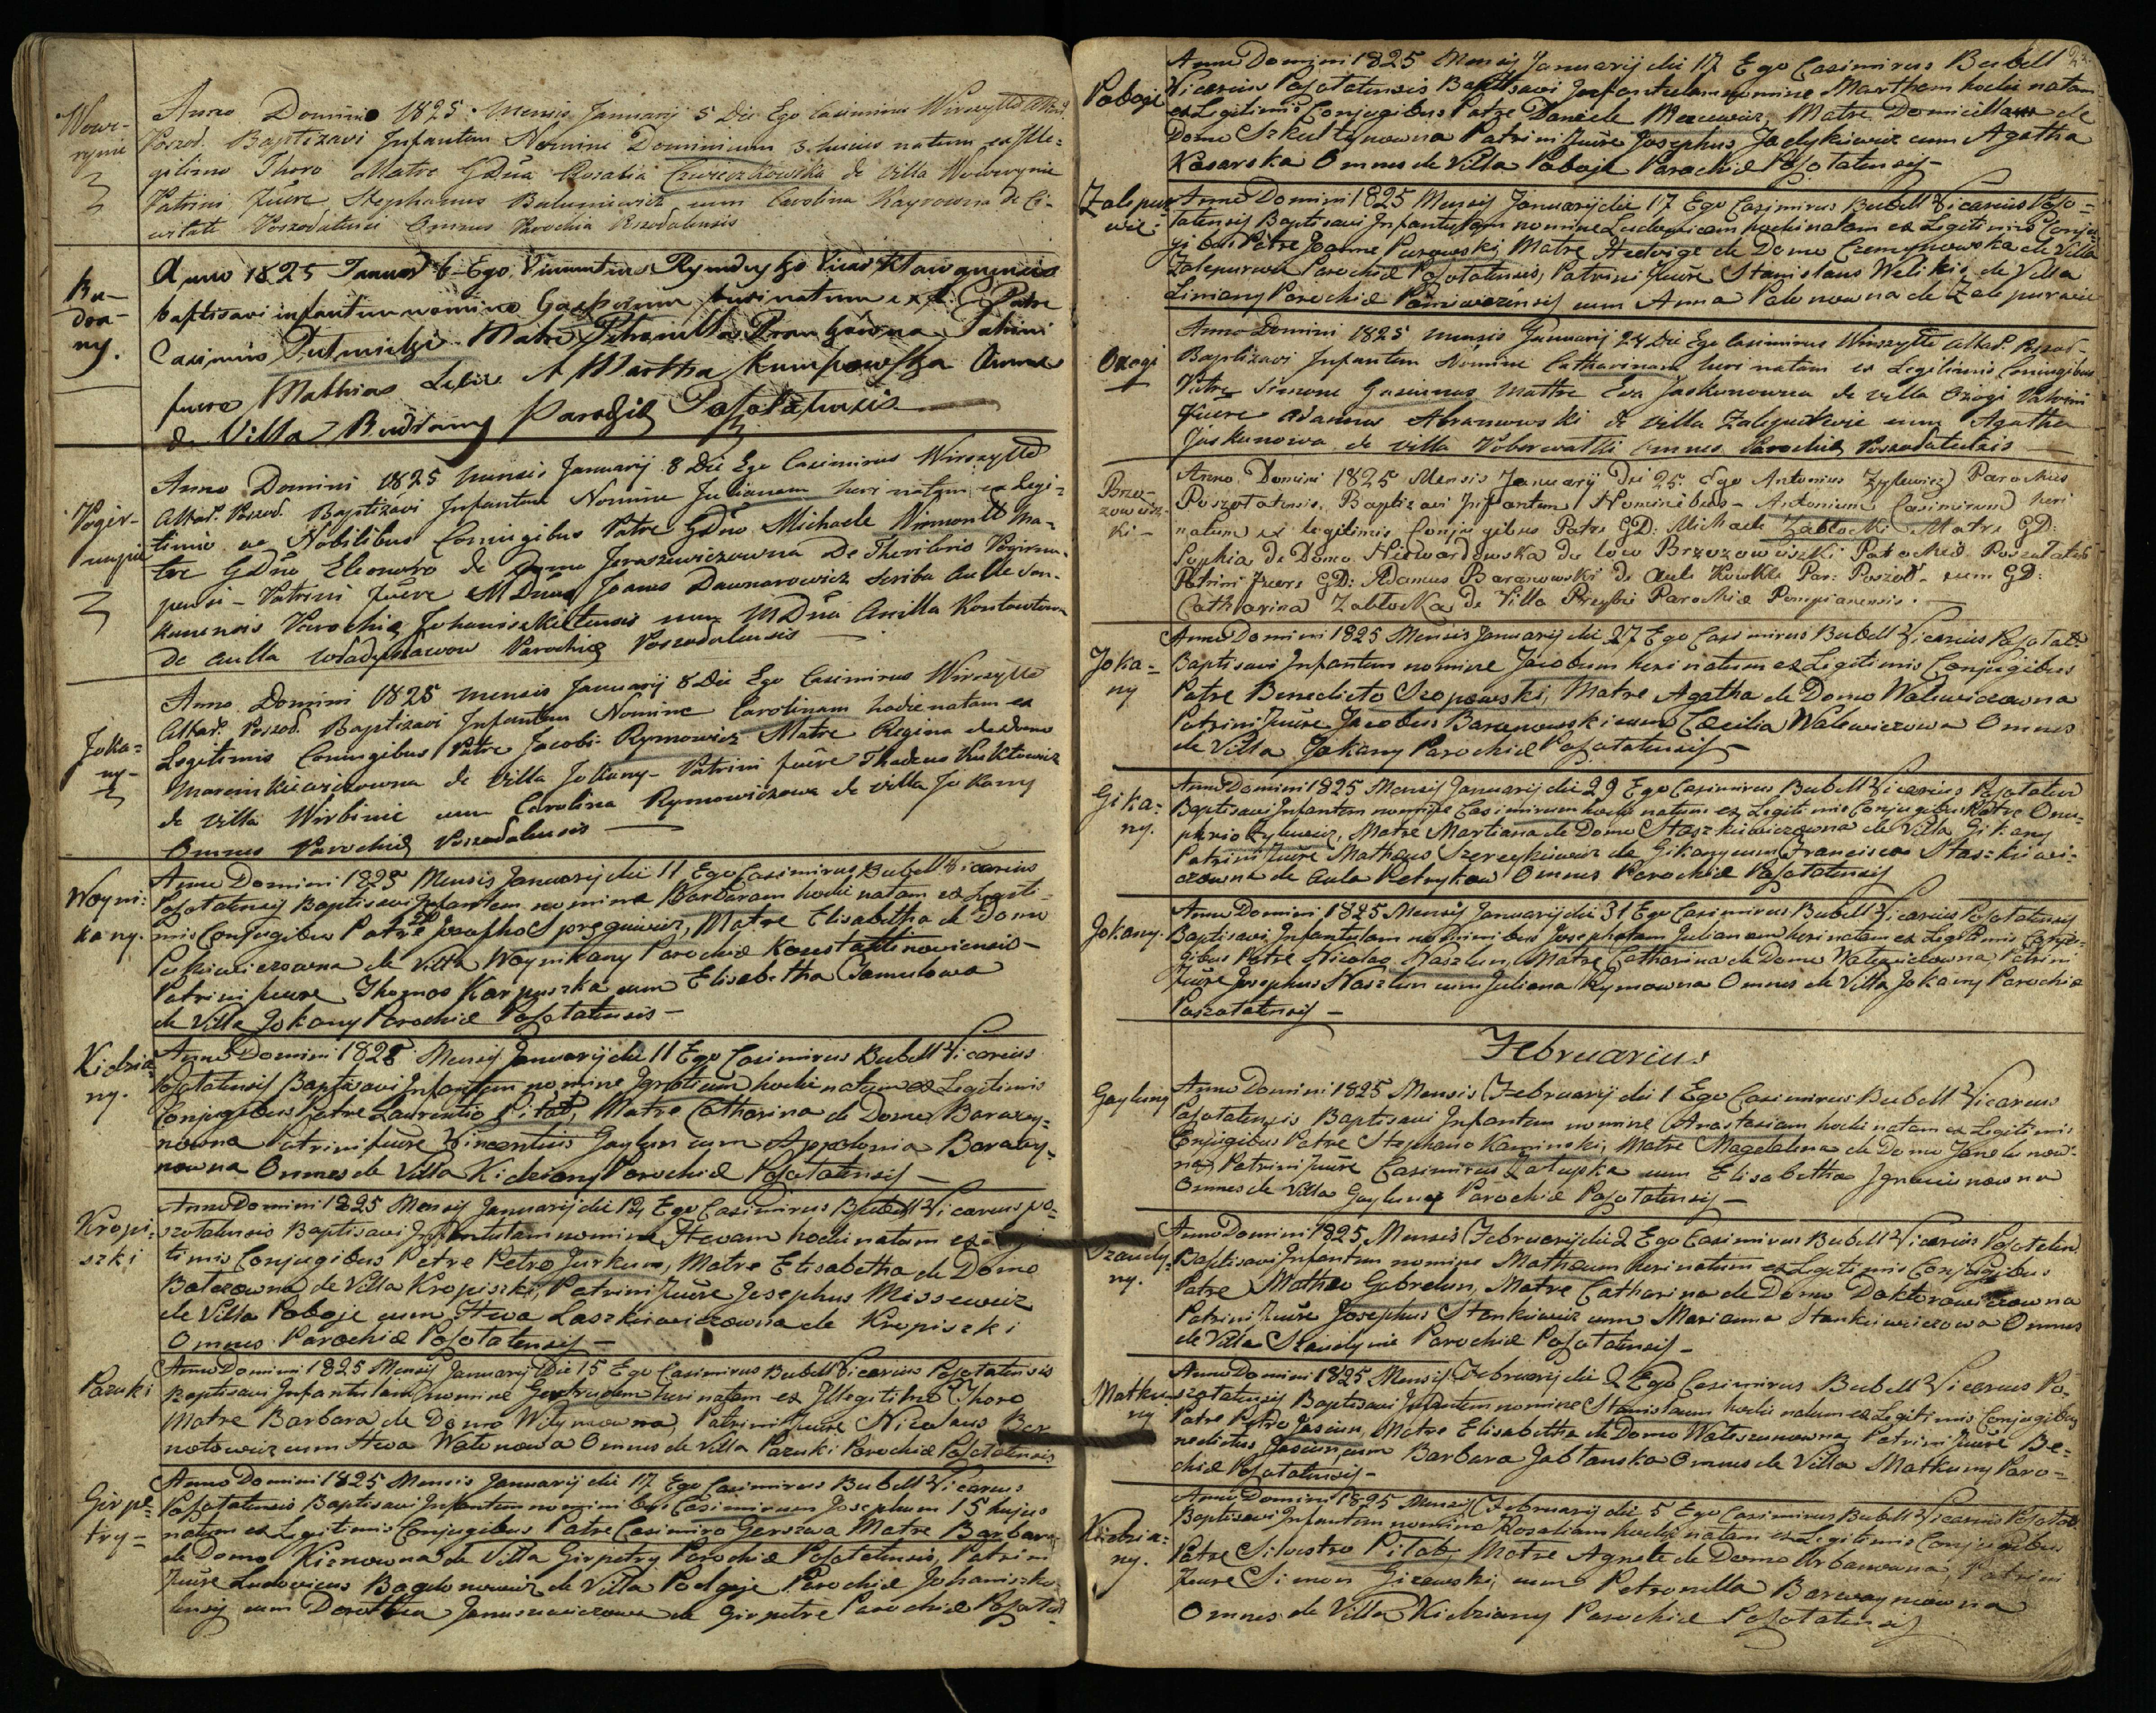 Wowe-
rynie
Anno Domini 1825 Mensis Januarij 5 Die Ego Casimirus Wirszyłło Altar.
Poszod. Baptizavi Infantem Nomine Dominicum 3 hujus natum ex Ille=
gitimo Thoro Matre GDna Rosalia Cwieczkowska de Villa Wowerynie
Patrini fuere Stephanus Baluniewicz cum Carolina Rayrowna de Ci-
vitate Poszodatensi Omnes Parochia Poszodatensis
Bu-
dra-
ny.
Anno 1825 Januar 6 Ego Vincentius
baptisavi infantem nomine Gasparum heri natum ex L. C. Patre
Casimiro Matre Petronilla Patrini
fuere Mathias A Martha Omnes
de Villa Budrany Parochiæ Posotatensis
Pogir-
nupie
Anno Domini 1825 Mensis Januarij 8 Die Ego Casimirus Wirszyłło
Altar. Poszod. Baptizavi Infantem Nomine Julianam heri natam ex Legi=
timis ac Nobilibus Conjugibus Patre GDno Michaele Wirmontt Ma=
tre GDna Eleonora de Domo Jeraszewiczowna De Thenboris Pogirnu-
pensi - Patrini fuere MDnus Joanes Daunarowicz Scriba Aulle San-
kunensis Parochiæ Johaniszkeltensis cum MDna Anilla
de Aulla Władysławow Parochiæ Poszodatensis
Joka=
ny-
Anno Domini 1825 mensis Januarij 8 Die Ego Casimirus Wirszyłło
Altar. Poszod. Baptizavi Infantem Nomine Carolinam hodie natam ex
Legitimis Conjugibus Patre Jacobi Rymowicz Matre Regina de domo
Marcinkiewiczowna de Villa Jokany- Patrini fuere Thadeus Kuktowicz
de Villa Wirbinie cum Carolina Rymowiczowa de Villa Jokany
Omnes Parochiæ Poszodatensis
Woyni:
kany.
Anno Domini 1825 Mensis Januarij die 11 Ego Casimirus Bubell Vicarius
Posotatensis Baptisavi Infantem nomine Barbaram hodie natam ex Legiti-
mis Conjugibus Patre Josepho Matre Elisabetha de Domo
Pukiewiczowna de Villa Woynikany Parochiæ Konstantinoviensis-
Patrini fuere Thomas Karpuszka cum Elisabetha Samulowa
de Villa Jokany Parochiæ Posotatensis-
Kidzia
ny.
Anno Domini 1825 Mensis Januarij die 11 Ego Casimirus Bubell Vicarius
Posotatensis Baptisavi Infantem nomine Ignatium hodie natum ex Legitimis
Conjugibus Patre Laurentio Pitab, Matre Catharina de Domo Barwey-
nowna Patrini fuere Vincentius Gaylun cum Appolonia Barwey-
nowna Omnes de Villa Kidziany Parochiæ Posotatensis-
Kropi:
szki
Anno Domini 1825 Mensis Januarij die 12 Ego Casimirus Bubell Vicarius po-
szotatensis Baptisavi Infantulam nomine Hevam hodie natam ex Legi-
timis Conjugibus Patre Petro Jurkun, Matre Elisabetha de Domo
Batezowna de Villa Kropiszki, Patrini fuere Josephus Missewicz
de Villa Poboje cum Hewa Laszkiewiczowna de Kropiszki
Omnes Parochiæ Posotatensis-
Pazuki
Anno Domini 1825 Mensis Januarij Die 15 Ego Casimirus Bubell Vicarius Posotatensis
Baptisavi Infantulam nomine Gertrudem heri natam ex Illegitimo Thoro
Matre Barbara de Domo Witymowna, Patrini fuere Nicolaus Ber
notowicz cum Hewa Watonowa Omnes de Villa Pazuki Parochiæ Posotatensis
Girpe-
try-
Anno Domini 1825 Mensis Januarij die 17 Ego Casimirus Bubell Vicarius
Posotatensis Baptisavi Infantem nominibus Casimirum Josephum 15 hujus
natum ex Legitimis Conjugibus Patre Casimiro Gerszwa Matre Barbara
de Domo Kienowna de Villa Girpetry Parochiæ Posotatensis, Patrini
fuere Ludovicus Bagdonowicz de Villa Podgaje Parochiæ Johaniszke
lensis cum Dorothea Januszewiczowa de Girpetre Parochiæ Posotat
Poboje
Anno Domini 1825 Mensis Januarij die 17 Ego Casimirus Bubell
Vicarius Posotatensis Baptisavi Infantulam nomine Martham hodie natam
ex Legitimis Conjugibus Patre Daniele Mizewicz, Matre Domicilla de
Domo Szkultynowna Patrini fuere Josephus Jadykiewicz cum Agatha
Kosarska Omnes de Villa Poboje Parochiæ Posotatensis-
Zalepur
wie:
Anno Domini 1825 Mensis Januarij die 17 Ego Casimirus Bubell Vicarius Poso=
tatensis Baptisavi Infantulam nomine Ludovicam hodie natam ex Legitimis Conju-
gibus Patre Joanne Purzewski, Matre Hedvige de Domo Czemynowska de Villa
Zalepurwie Parochiæ Posotatensis, Patrini fuere Stanislaus Welikis de Villa
Liniany Parochiæ Poniwezinsis cum Anna Palonowna de Zalepurwie
Ozogi
Anno Domini 1825 mensis Januarij 24 Die Ego Casimirus Wirszyłło Altar. Poszod-
Baptizavi Infantem Nomine Catharinam heri natam ex Legitimis Conjugibus
Patre Simone Gasiunas Mattre Eva Jaskunowna de villa Ozogi Patrini
fuere Adamus Abramowski de villa Zalepurwie cum Agatha
Jaskunowa de villa Poberwałki Omnes Parochiæ Poszodatensis
Brzo-
zowisz-
ki-
Anno Domini 1825 Mensis January Die 25. Ego Antonius Zyzlewicz Parochus
Poszotatensis, Baptizavi Infantem Nominibus- Antonium Casimirum heri
natum ex legitimis Conjugibus Patre GD: Michaele Zabłocki Matre GD:
Sophia de Domo Niewardowska de loco Brzozowiszki Parochiæ Poszotatens
Patrini fuere GD: Adamus Baranowski de Aula Kowkle Par: Poszod- cum GD:
Catharina Zabłocka de Villa Przybis Parochiæ Pompianensis.-
Joka=
ny
Anno Domini 1825 Mensis Januarij die 27 Ego Casimirus Bubell Vicarius Posotat:
Baptisavi Infantem nomine Jacobum heri natum ex Legitimis Conjugibus
Patre Benedicto Szopowski, Matre Agatha de Domo Walewiczowna
Patrini fuere Jacobus Baranowski cum Cæcilia Walewiczowa Omnes
de Villa Jokany Parochiæ Posotatensis-
Gika:
ny.
Anno Domini 1825 Mensis Januarij die 29 Ego Casimirus Bubell Vicarius Posotaten
Baptisavi Infantem nomine Casimirum hodie natum ex Legitimis Conjugibus Patre Onu-
phrio Zylewicz, Matre Martiana de Domo Staszkiewiczowna de Villa Gikany
Patrini fuere Matheus Szereykiewicz de Gikany cum Francisca Staszkiewi-
czowna de Aula Petrykow Omnes Parochiæ Posotatensis
Jokany.
Anno Domini 1825 Mensis Januarij die 31 Ego Casimirus Bubell Vicarius Posotatensis
Baptisavi Infantulam nominibus Josepham Julianam heri natam ex Legitimis Conju-
gibus Patre Nicolao Naszlun, Matre Catharina de Domo Walewiczowna, Patrini
fuere Josephus Naszlun cum Juliana Rymowna Omnes de Villa Jokany Parochiæ
Poszotatensis-
Februarius
Gayluny
Anno Domini 1825 Mensis Februarij die 1 Ego Casimirus Bubell Vicarius
Posotatensis Baptisavi Infantem nomine Anastasiam hodie natam ex Legitimis
Conjugibus Patre Stephano Kaminski, Matre Magdalena de Domo Janelunow-
na, Patrini fuere Casimirus Załupska cum Elisabetha Ignaciunowna
Omnes de Villa Gayluny Parochiæ Posotatensis-
Szaudy-
ny.
Anno Domini 1825 Mensis Februarij die 2 Ego Casimirus Bubell Vicarius Posotaten
Baptisavi Infantem nomine Matheum heri natum ex Legitimis Conjugibus
Patre Matheo Gabrelun, Matre Catharina de Domo Doktorowiczowna
Patrini fuere Josephus Stankiewicz cum Marianna Stankiewiczowa Omnes
de Villa Szaudynie Parochiæ Posotatensis-
Matku
ny
Anno Domini 1825 Mensis Februarij die 2 Ego Casimirus Bubell Vicarius Po-
szotatensis Baptisavi Infantem nomine Stanislaum hodie natum ex Legitimis Conjugibus
Patre Petro Jasiun, Matre Elisabetha de Domo Waluszunowna Patrini fuere Be=
nedictus Jasiun cum Barbara Jabłonska Omnes de Villa Matkuny Paro=
chiæ Posotatensis-
Kidzia:
ny.
Anno Domini 1825 Mensis Februarij die 5 Ego Casimirus Bubell Vicarius Posotat
Baptisavi Infantem nomine Rosaliam hodie natam ex Legitimis Conjugibus
Patre Silvestro Pitab, Matre Agnete de Domo Urbanowna, Patrini
fuere Simon Gizewski, cum Petronella Barwaynowna
Omnes de Villa Kidziany Parochiæ Posotatensis